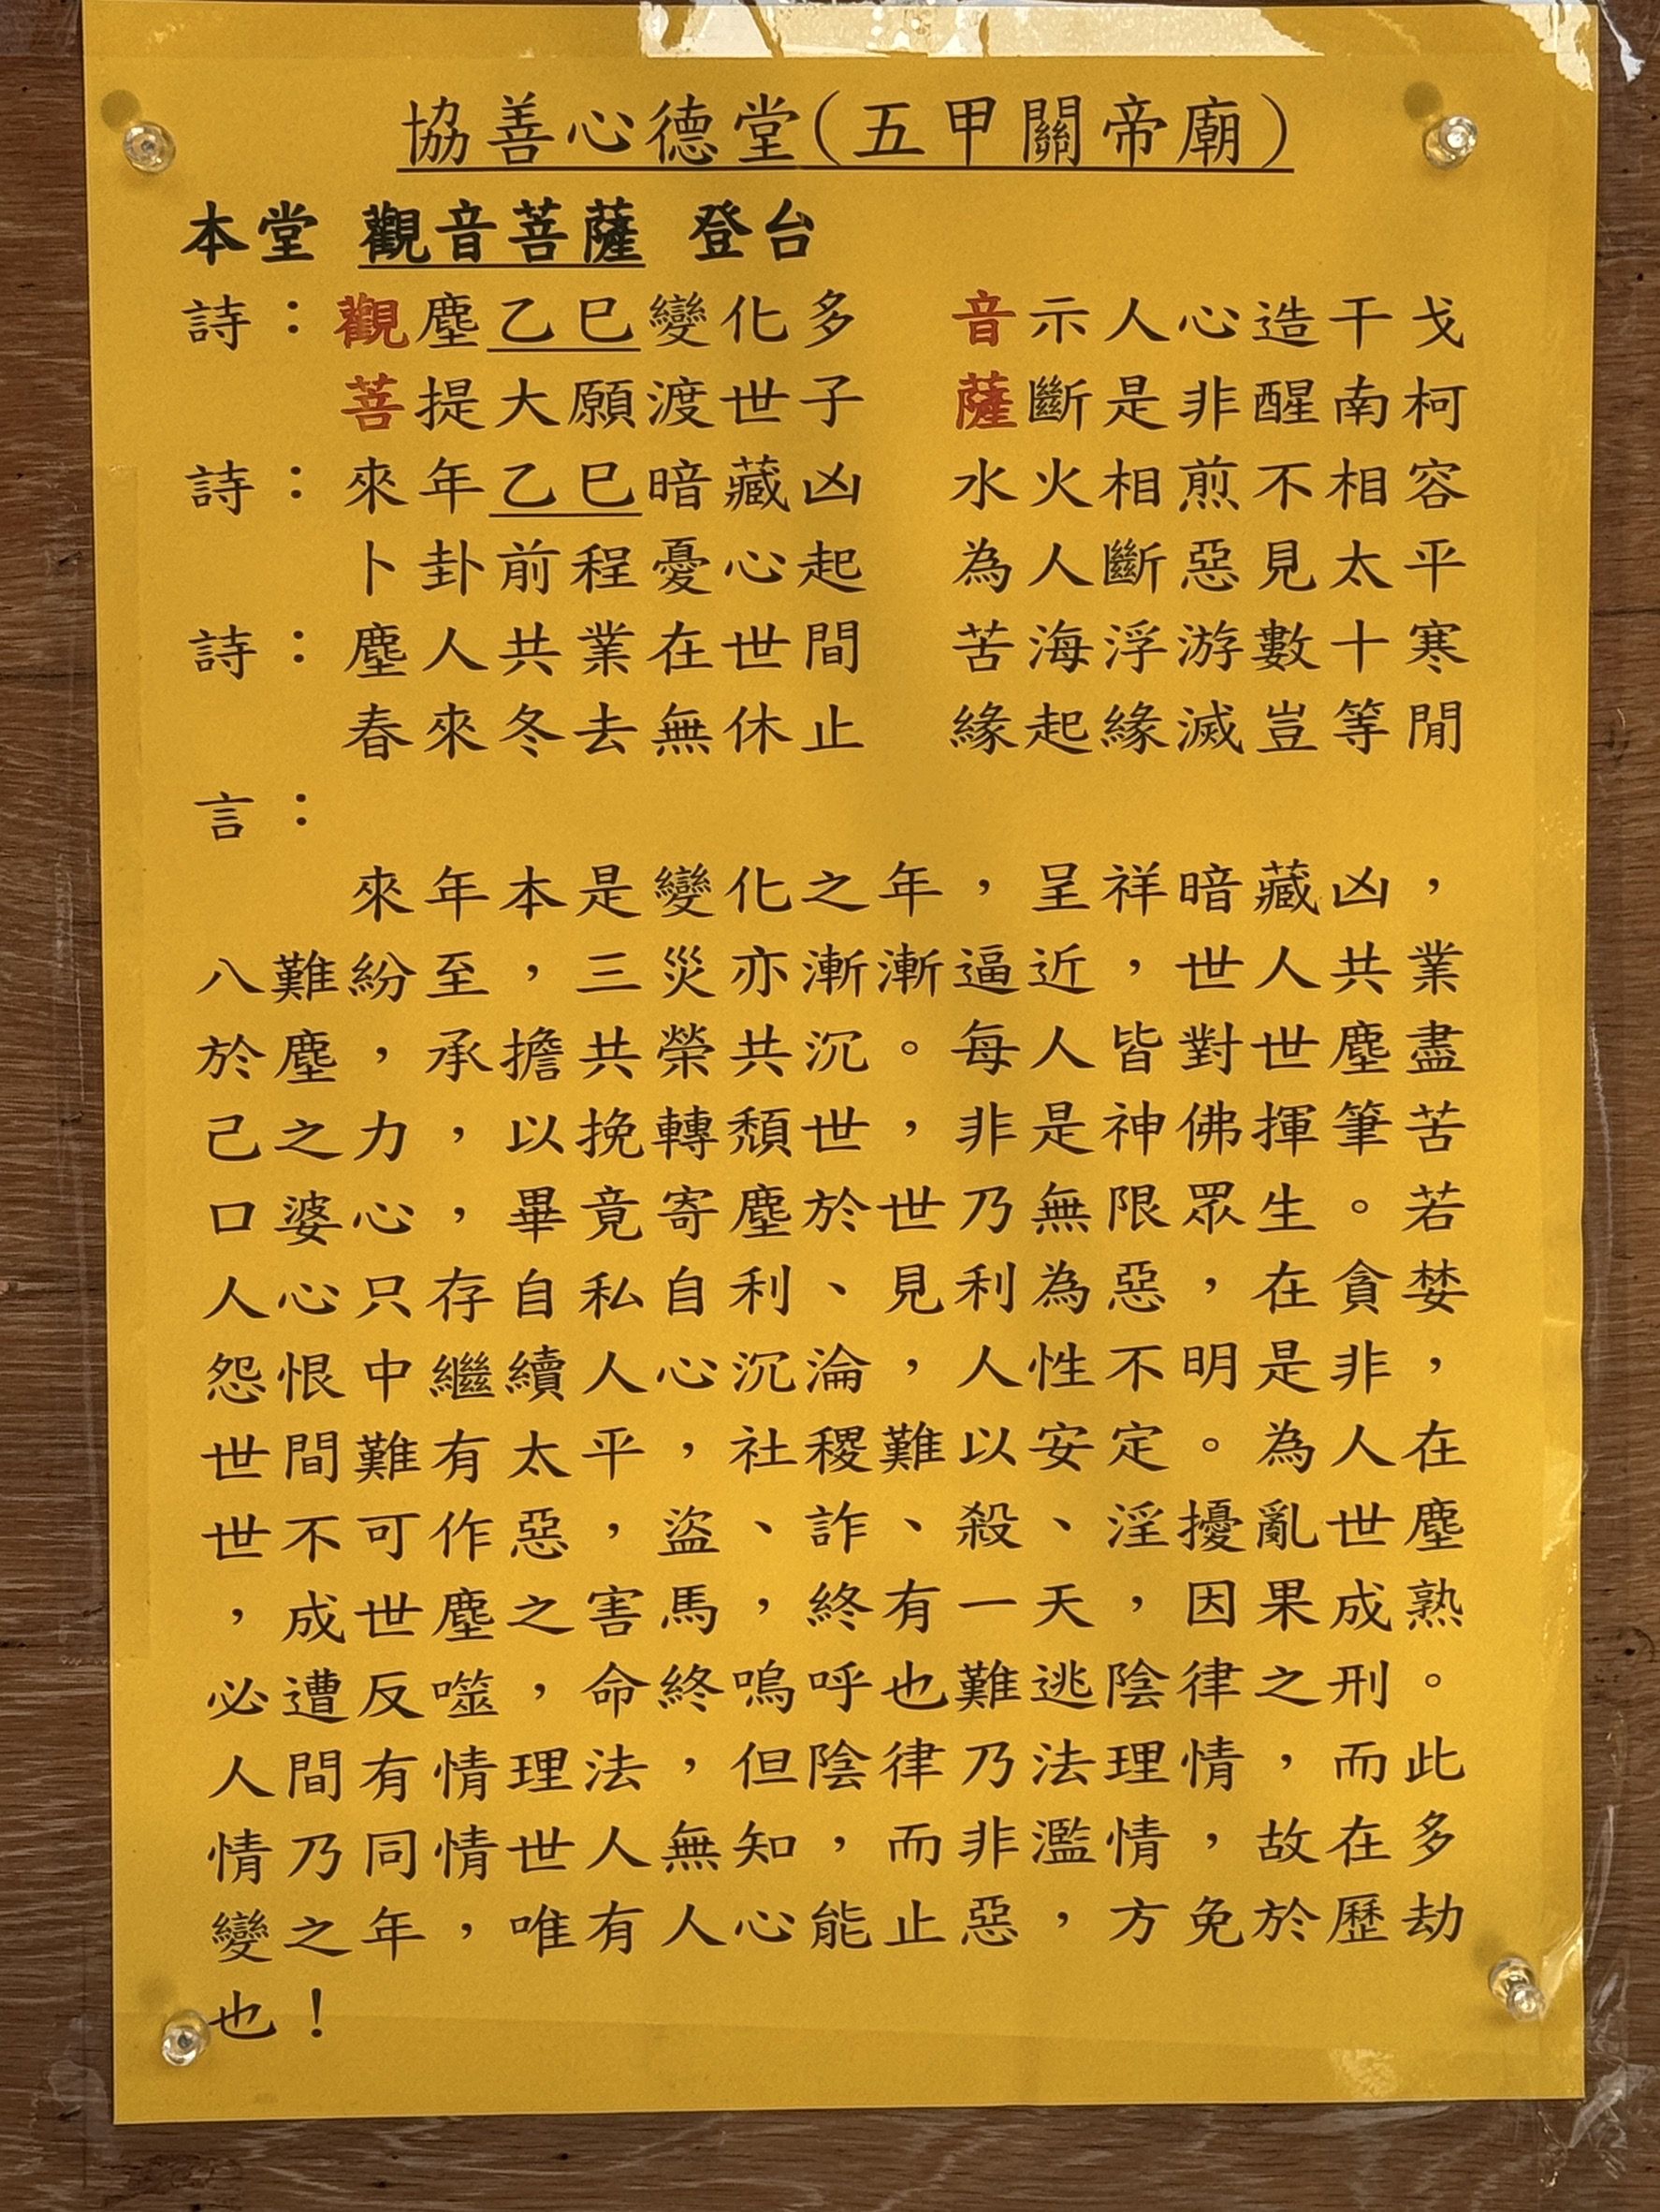 協善心德堂(五甲關帝廟)
本堂 觀音菩薩 登台
詩：觀塵乙巳變化多 音示人心造干戈
菩提大願渡世子 薩斷是非醒南柯
詩：來年乙巳暗藏凶 水火相煎不相容
卜卦前程憂心起 為人斷惡見太平
詩：塵人共業在世間 苦海浮游數十寒
春來冬去無休止 緣起緣滅豈等閒
言：
來年本是變化之年，呈祥暗藏凶，
八難紛至，三災亦漸漸逼近，世人共業
於塵，承擔共榮共沉。每人皆對世塵盡
己之力，以挽轉頹世，非是神佛揮筆苦
口婆心，畢竟寄塵於世乃無限眾生。若
人心只存自私自利、見利為惡，在貪婪
怨恨中繼續人心沉淪，人性不明是非，
世間難有太平，社稷難以安定。為人在
世不可作惡，盜、詐、殺、淫擾亂世塵
，成世塵之害馬，終有一天，因果成熟
必遭反噬，命終嗚呼也難逃陰律之刑。
人間有情理法，但陰律乃法理情，而此
情乃同情世人無知，而非濫情，故在多
變之年，唯有人心能止惡，方免於歷劫
也！